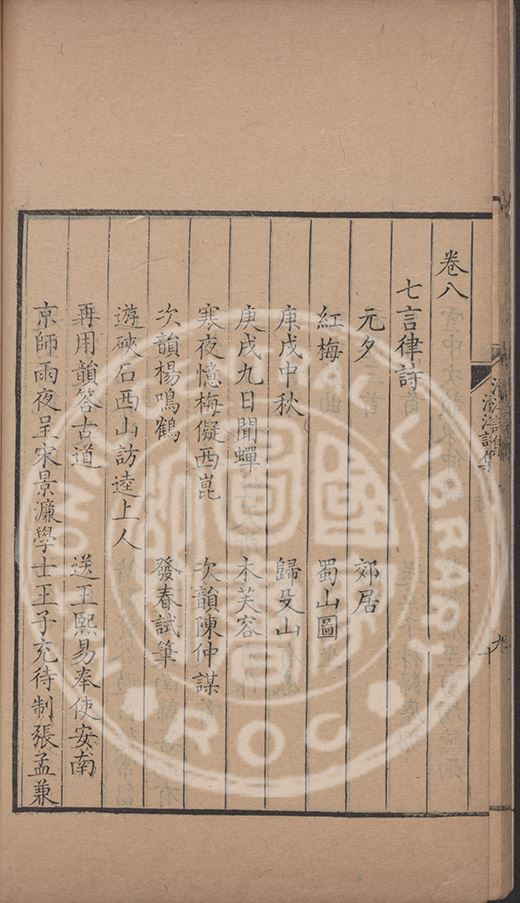 卷八
七言律詩
元夕 郊居
紅梅 蜀山圖
庚戌中秋 歸殳山
庚戌九日聞蟬 木芙容
寒夜憶梅儗西崑 次韻陳仲謀
次韻楊鳴鶴 發春試筆
遊硤石西山訪逵上人
再用韻答古道 送王熙易奉使安南
京師雨夜呈宋景濂學士王子充待制張孟兼